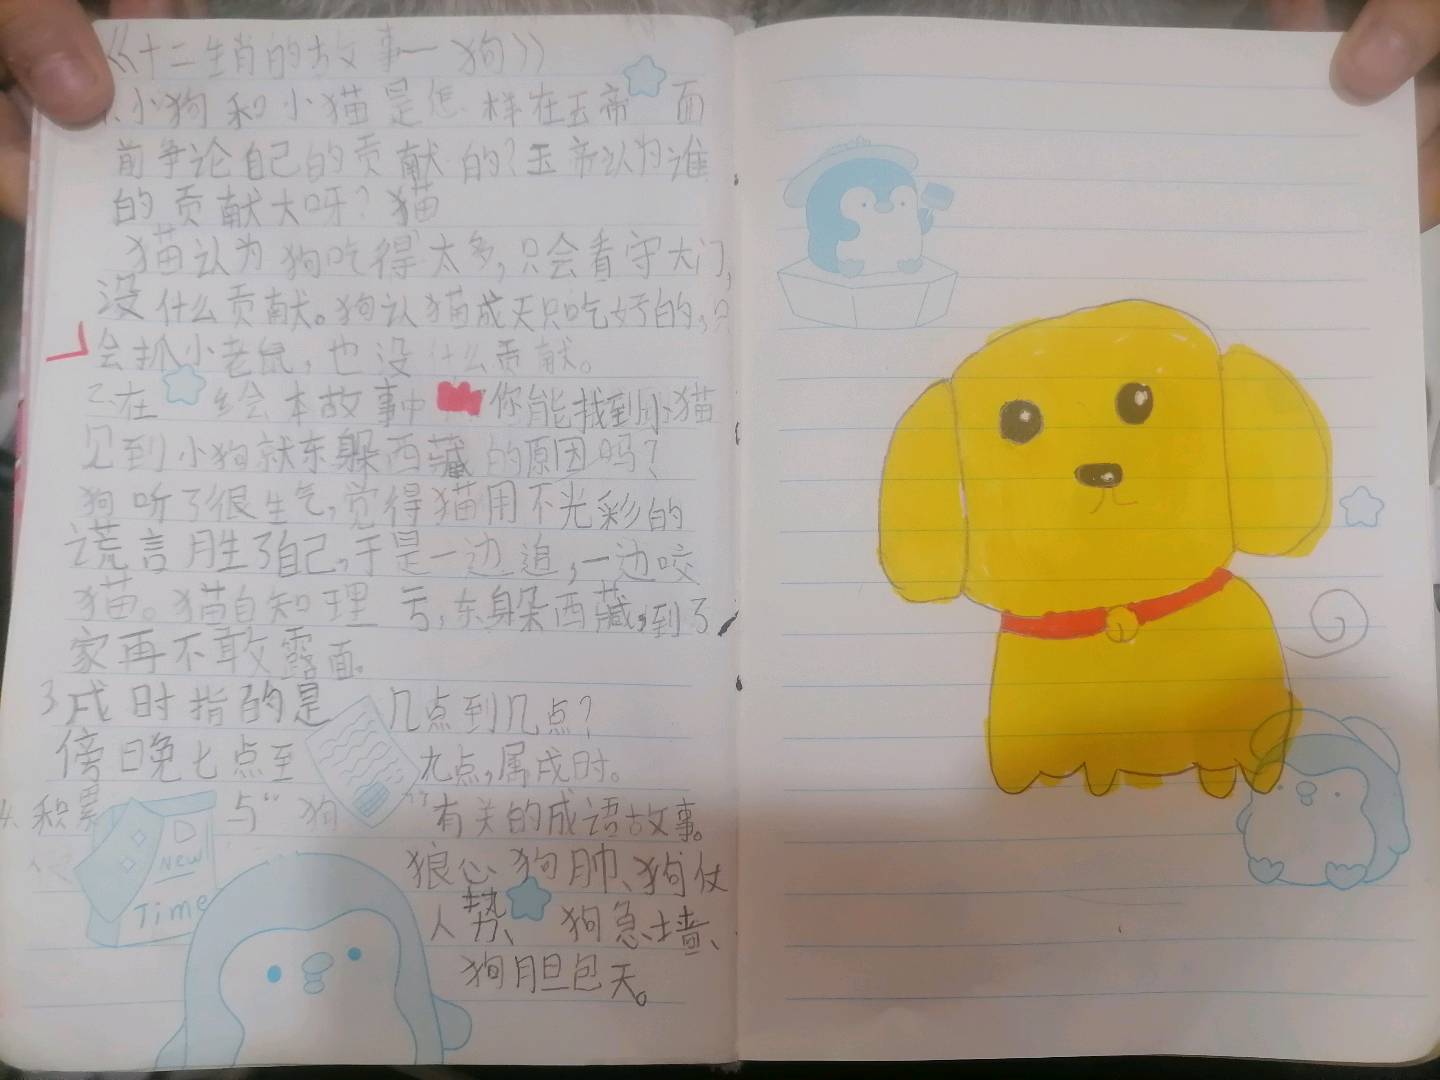 《十二生肖的故事—狗》
1.小狗和小猫是怎样在玉帝面
前争论自己的贡献的?玉帝认为谁
的贡献大呀?猫
猫认为狗吃得太多,只会看守大门,
没什么贡献。狗认猫成天只吃好的,只
会抓小老鼠,也没什么贡献。
2.在绘本故事中你能找到小猫
见到小狗就东躲西藏的原因吗?
狗听了很生气,觉得猫用不光彩的
谎言胜了自己,于是一边追,一边咬
猫。猫自知理亏,东躲西藏,到了
家再不敢露面。
3戌时指的是几点到几点?
傍晚七点至九点,属戌时。
4.积累与“狗”有关的成语故事。
狼心狗肺、狗仗
人势、狗急墙、
狗胆包天。
New
Time